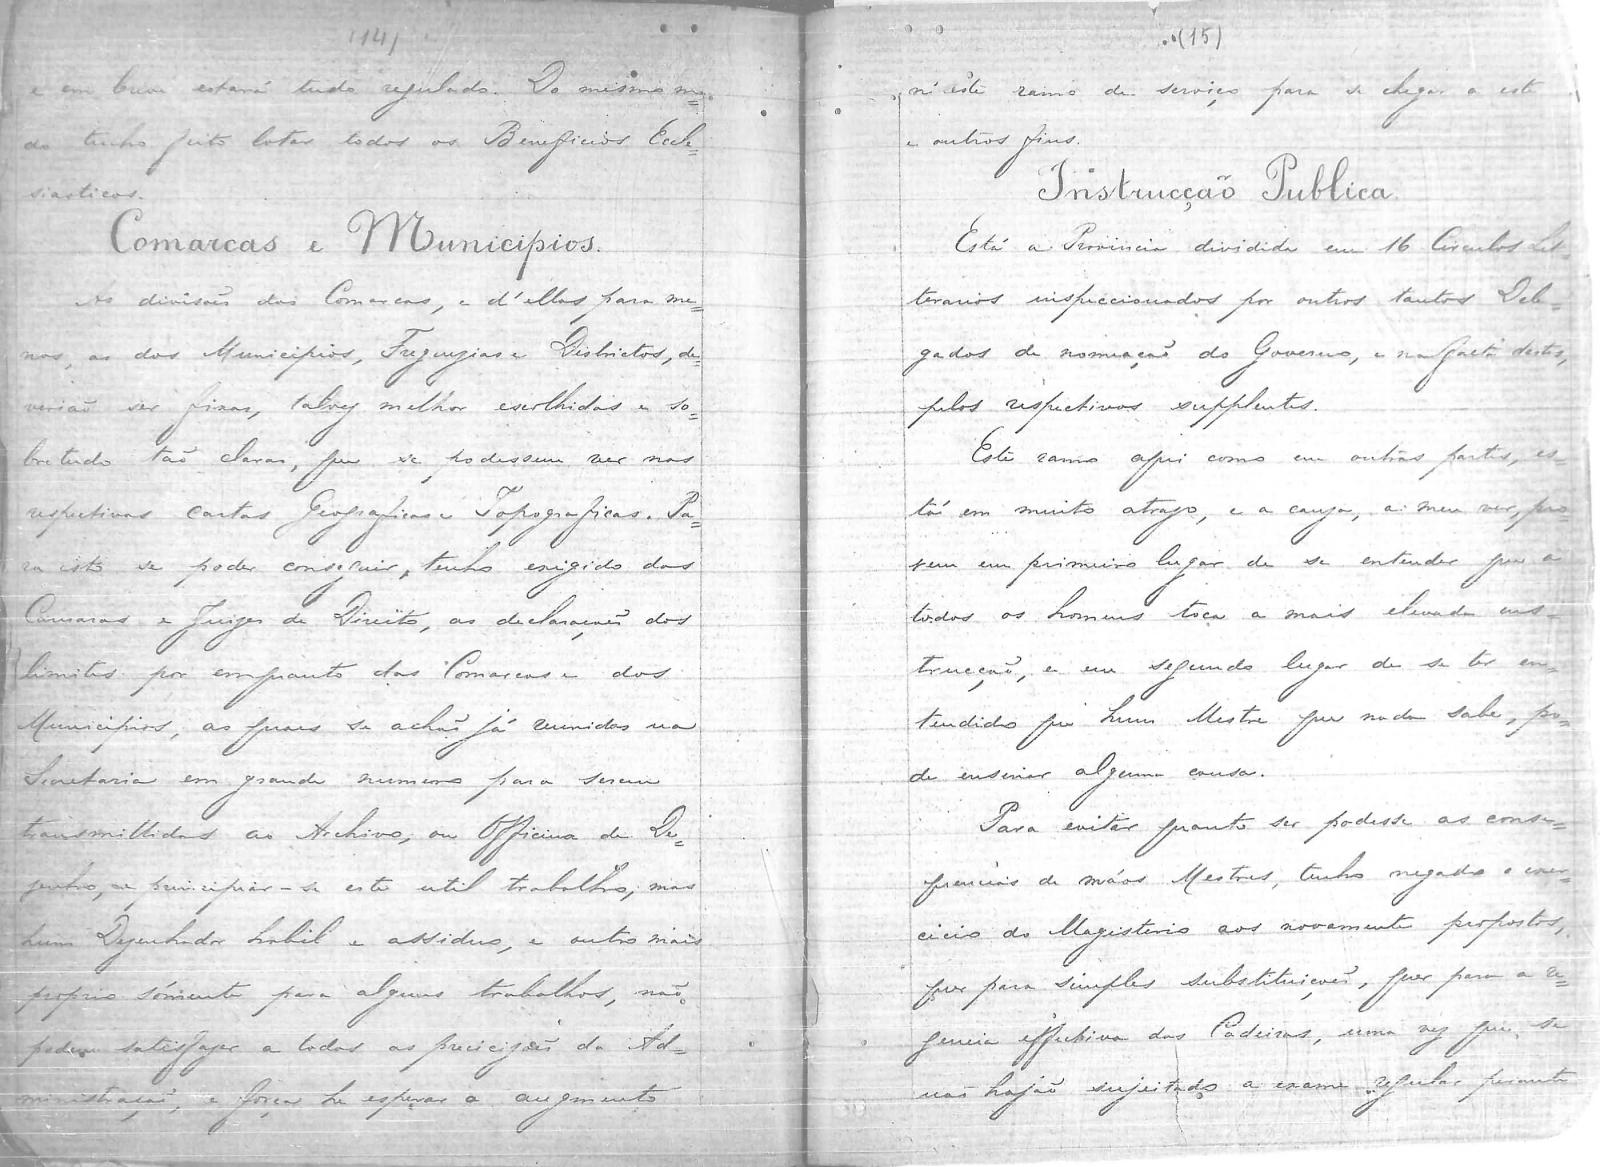 (14)
e em breve estará tudo regulado. Do mesmo mo=
do tenho feito lotar todos os Beneficios Eccle=
siasticos.
Comarcas e Municipios.
As divisões das Comarcas, e d'ellas para me=
nos, as dos Municipios, Freguezias e Districtos, de=
verião ser fixas, talvez melhor escolhidas e so=
bretudo taõ claras, que se podessem ver nas
respectivas cartas Geograficas e Topograficas. Pa=
ra isto se poder conseguir, tenho exigido das
Camaras e Juizes de Direito, as declarações dos
limites por emquanto das Comarcas e dos
Municipios, as quaes se achaõ já reunidas na
Secretaria em grande numero para serem
transmittidas ao Archivo, ou Officina de De=
zenho, e principiar-se este util trabalho; mas
hum Dezenhador habil e assiduo, e outro mais
proprio sómente para alguns trabalhos, naõ
podem satisfazer a todas as precizões da Ad=
ministraçaõ, e força he esperar o augmento
(15)
n'este ramo de serviço para se chegar a este
e outros fins.
Instrucçaõ Publica.
Está a Provincia dividida em 16 Circulos Lit=
terarios inspeccionados por outros tantos Dele=
gados de nomeaçaõ do Governo, e na falta destes,
pelos respectivos supplentes.
Este ramo aqui como em outras partes, es=
tá em muito atrazo, e a cauza, a meu ver, pro=
vem em primeiro lugar de se entender que a
todos os homens toca a mais elevada ins=
trucçaõ, e em segundo lugar de se ter en=
tendido que hum Mestre que nada sabe, po=
de ensinar alguma cousa.
Para evitar quanto ser podesse as conse=
quencias de máos Mestres, tenho negado o exer=
cicio do Magisterio aos novamente propostos,
quer para simples substituições, quer para a re=
gencia effectiva das Cadeiras, uma vez que se
naõ hajaõ sujeitado a exame regular perante